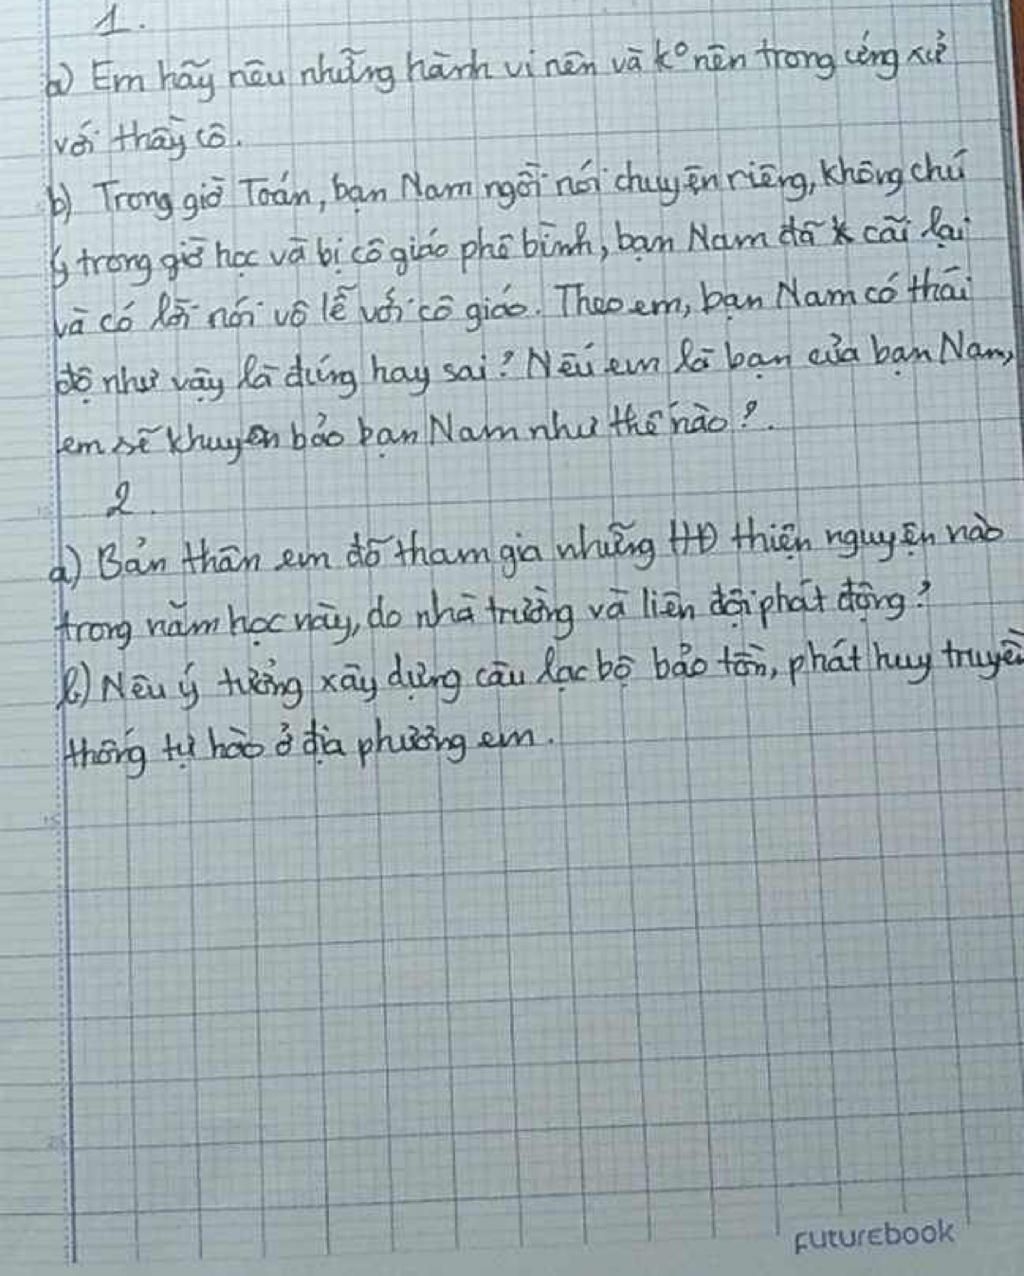 1.
a) Em hãy nêu những hành vi nên và kº nên trong ứng xử
với thầy cô.
b) Trong giờ Toán, bạn Nam ngồi nói chuyện riêng, không chú
ý trong giờ học và bị cô giáo phê bình, bạn Nam đã cãi lại
và có lời nói vô lễ với cô giáo. Theo em, bạn Nam có thái
độ như vậy là đúng hay sai? Nếu em là bạn của bạn Nam,
em sẽ khuyên bảo bạn Nam như thế nào?.
2.
a) Bản thân em đã tham gia những HĐ thiện nguyện nào
trong năm học này, do nhà trường và liên đội phát động?
b) Nêu ý tưởng xây dựng câu lạc bộ bảo tồn, phát huy truyền
thống tự hào ở địa phương em.
FUTUREBOOK